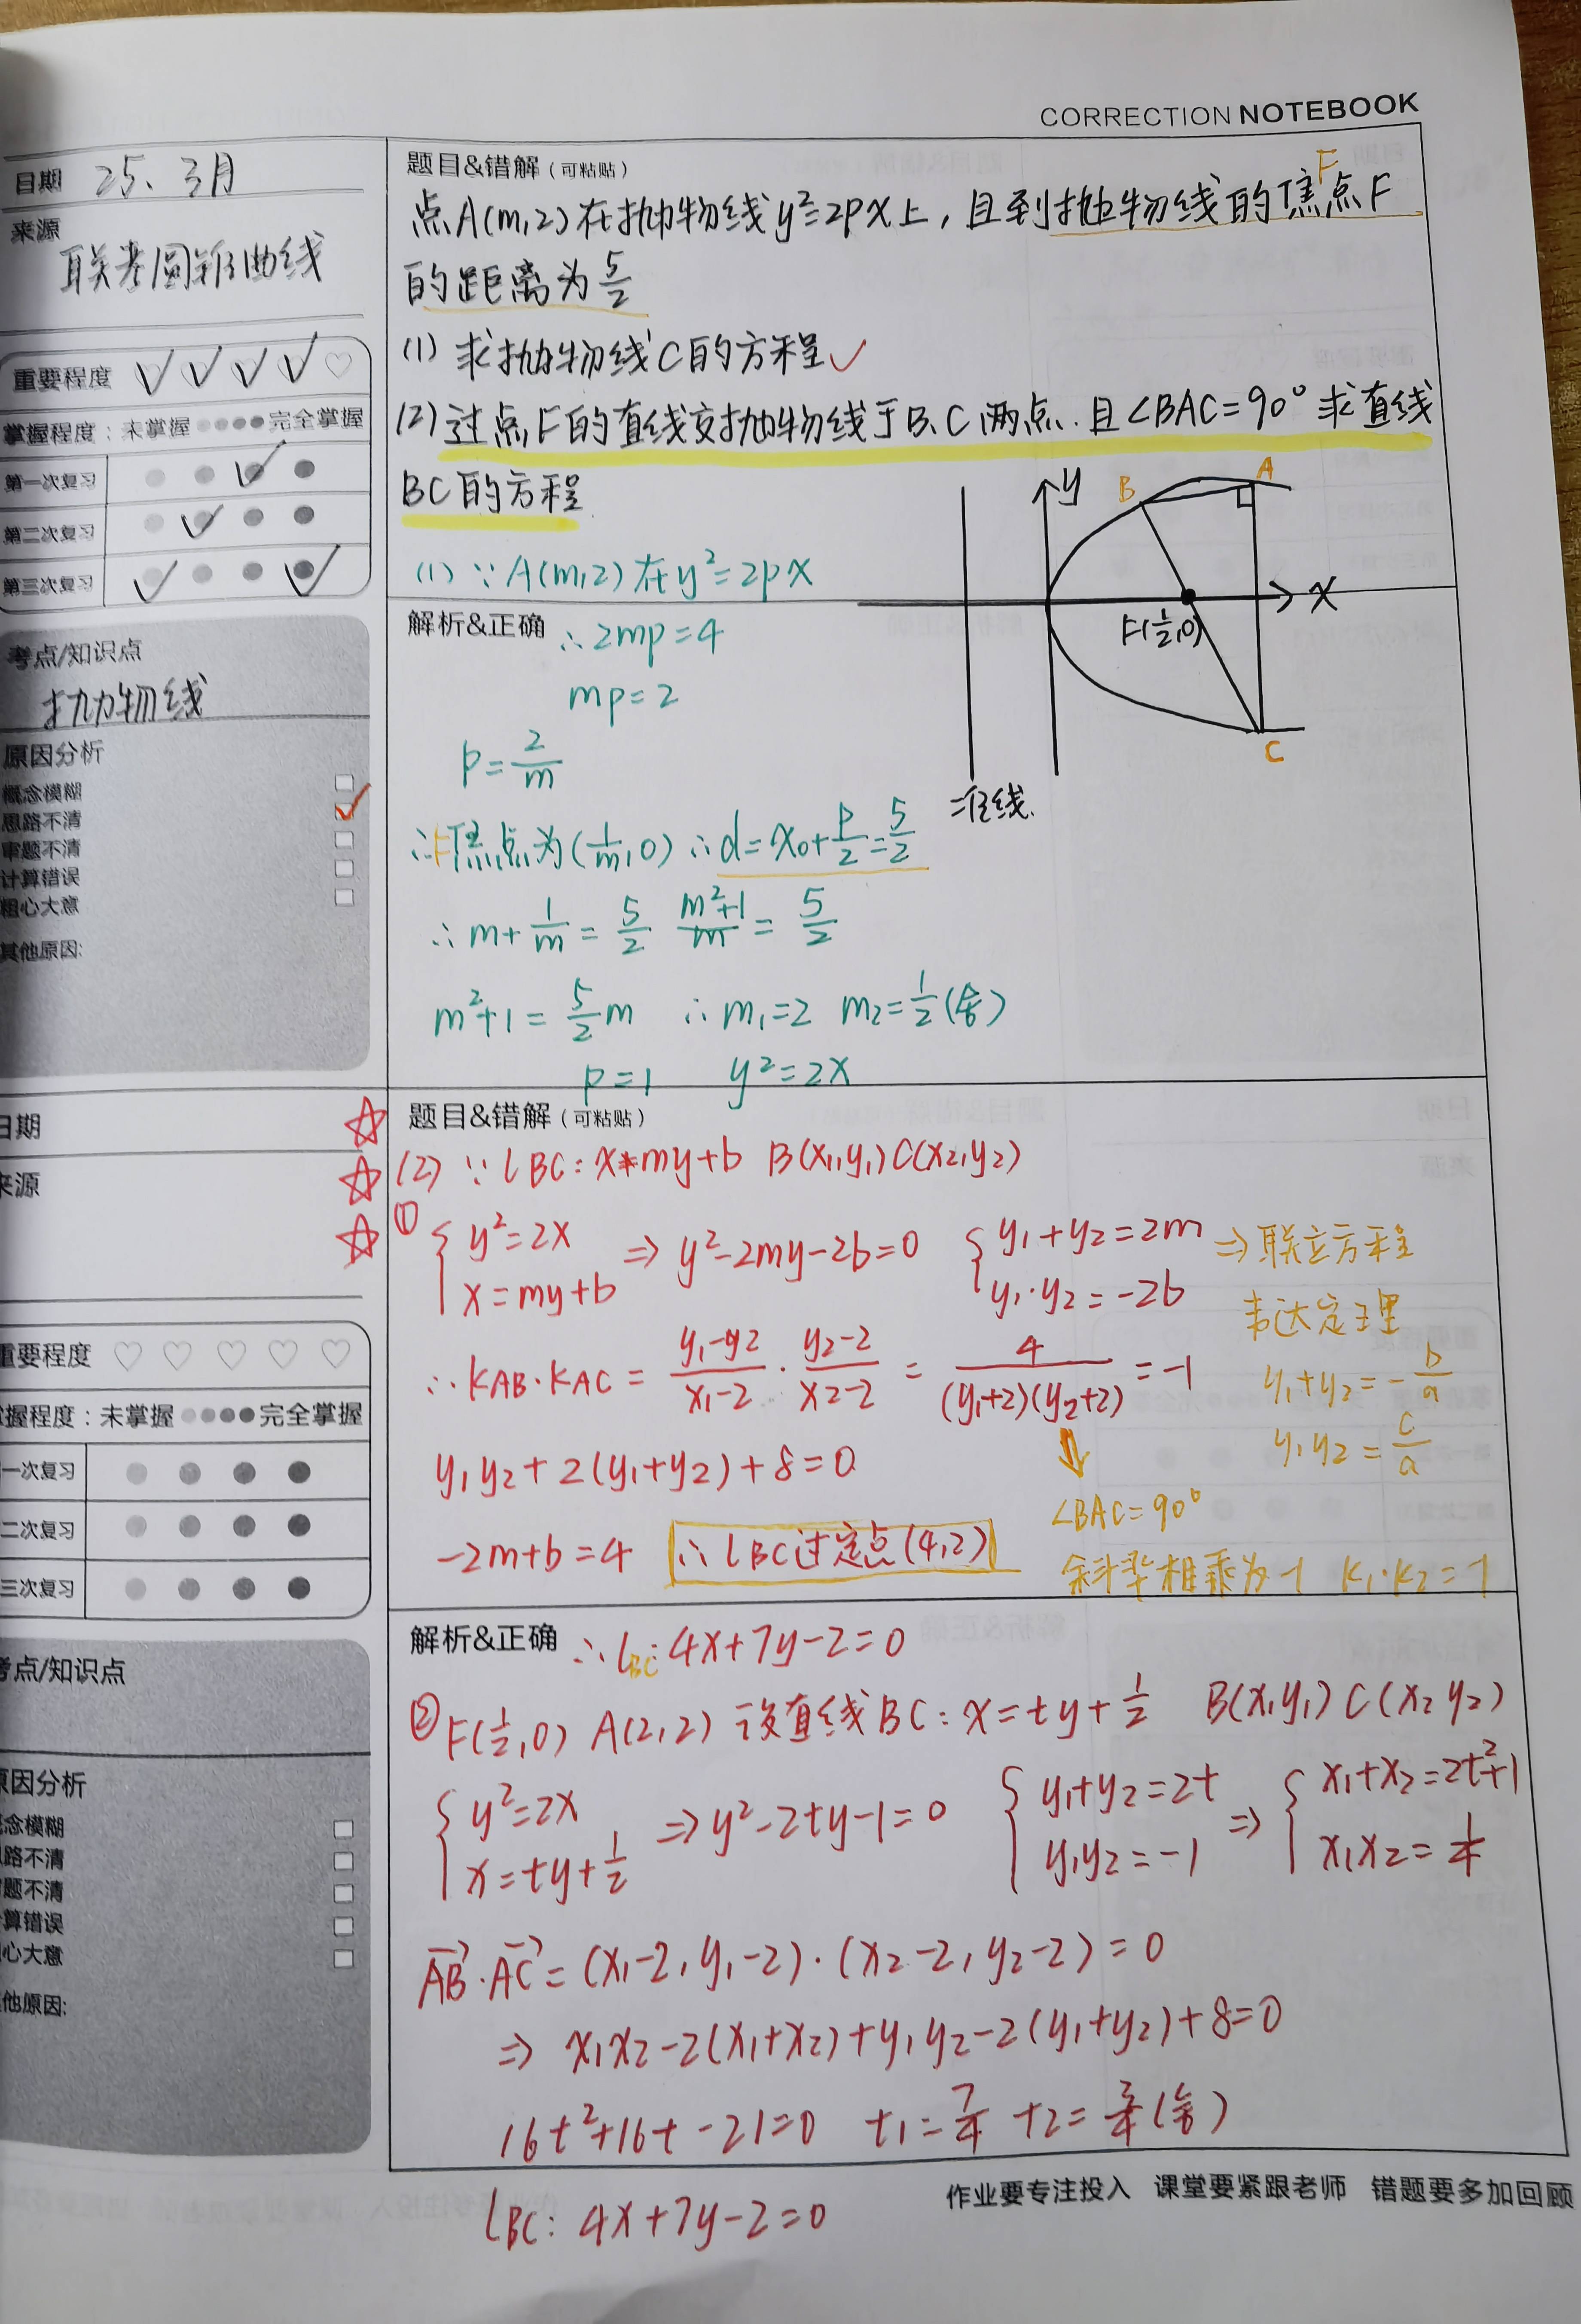 CORRECTION NOTEBOOK
日期 25、3月
来源
联考圆锥曲线
重要程度
掌握程度：未掌握 完全掌握
第一次复习
第二次复习
第三次复习
考点/知识点
抛物线
原因分析
概念模糊
思路不清
审题不清
计算错误
粗心大意
其他原因:
题目&错解（可粘贴）
F
点A(m,2)在抛物线y²=2px上，且到抛物线的焦点F
的距离为5/2
(1) 求抛物线C的方程✓
(2) 过点F的直线交抛物线于B、C两点.且∠BAC=90°求直线
BC的方程
y
B
A
x
F(1/2,0)
C
准线.
(1) ∵A(m,2)在y²=2px
解析&正确
∴2mp=4
mp=2
p=2/m
∴焦点为(1/m,0) ∴d=x₀+p/2=5/2
∴m+1/m=5/2 (m²+1)/m=5/2
m²+1=5/2m ∴m₁=2 m₂=1/2(舍)
p=1 y²=2x
日期
来源
重要程度
掌握程度：未掌握 完全掌握
一次复习
二次复习
三次复习
考点/知识点
原因分析
概念模糊
思路不清
题不清
算错误
心大意
他原因:
题目&错解（可粘贴）
(2) ∵lBC: x=my+b B(x₁,y₁)C(x₂,y₂)
①
{y²=2x
x=my+b ⇒ y²-2my-2b=0 {y₁+y₂=2m
y₁·y₂=-2b ⇒联立方程
韦达定理
y₁+y₂=-b/a
y₁y₂=c/a
∴kAB·kAC=(y₁-y2)/(x₁-2)·(y₂-2)/(x2-2)=4/((y₁+2)(y₂+2))=-1
y₁y₂+2(y₁+y₂)+8=0
⇓
∠BAC=90°
斜率相乘为-1 k₁·k₂=-1
-2m+b=4 ∴lBC过定点(4,2)
解析&正确 ∴lBC: 4x+7y-2=0
②F(1/2,0) A(2,2) 设直线BC: x=ty+1/2 B(x₁y₁) C(x₂y₂)
{y²=2x
x=ty+1/2 ⇒y²-2ty-1=0 {y₁+y₂=2t
y₁y₂=-1 ⇒ {x₁+x₂=2t²+1
x₁x₂=1/4
AB·AC=(x₁-2,y₁-2)·(x₂-2,y₂-2)=0
⇒ x₁x₂-2(x₁+x₂)+y₁y₂-2(y₁+y₂)+8=0
16t²+16t-21=0 t₁=7/4 t2=3/4(舍)
lBC: 4x+7y-2=0
作业要专注投入 课堂要紧跟老师 错题要多加回顾